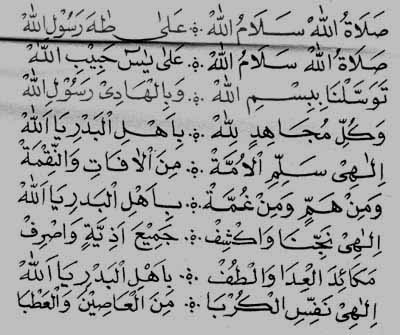 صَلَاةُ اللهْ سَـلَامُ اللهْ ۞ عَـلَى طٰهَ رَسُوْلِ اللهْ
صَلَاةُ اللهْ سَـلَامُ اللهْ ۞ عَلَى يٰسٓ حَبِيْبِ اللهْ
تَوَسَّلْنَا بِبِسْـمِ اللهْ ۞ وَبِالْهَادِيْ رَسُوْلِ اللهْ
وَكُلِّ مُجَـاهِدٍ لِلّٰهْ ۞ بِاَهْـلِ الْبَدْرِ يَا اَللهْ
اِلٰهِيْ سَـلِّمِ الْاُمَّـةْ ۞ مِنَ الْاٰفَاتِ وَالنِّقْمَةْ
وَمِنْ هَمٍّ وَمِنْ غُمَّـةْ ۞ بِاَهْلِ الْبَدْرِ يَا اَللهْ
اِلٰهِيْ نَجِّنَا وَاكْشِفْ ۞ جَمِيْعَ اَذِيَّةٍ وَاصْرِفْ
مَكَائِدَ الْعِدَا وَالْطُفْ ۞ بِاَهْلِ الْبَدْرِ يَا اَللهْ
اِلٰهِيْ نَفِّسِ الْكُرَبَا ۞ مِنَ الْعَاصِيْنَ وَالْعَطْبَا